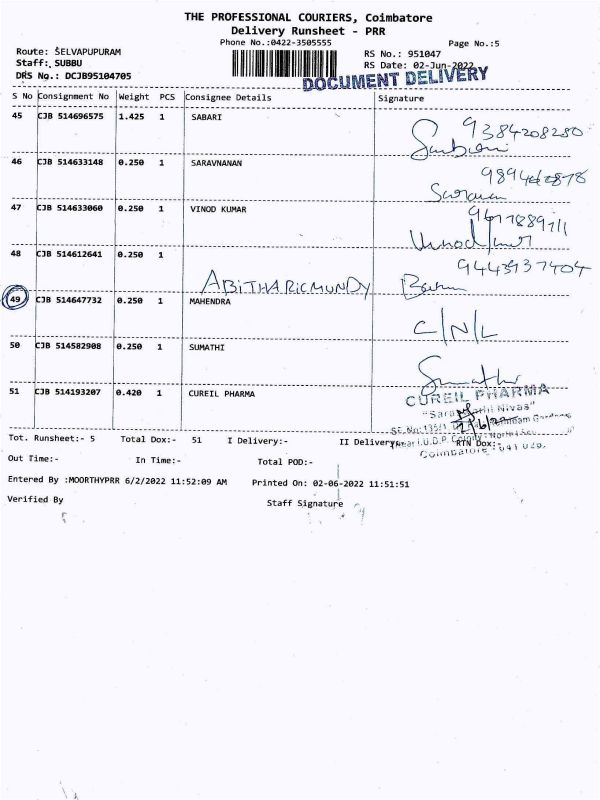 THE PROFESSIONAL COURIERS, Coimbatore
Delivery Runsheet - PRR
Phone No.:0422-3505555
Page No.:5
Route: SELVAPUPURAM
RS No.: 951047
Staff: SUBBU
RS Date: 02-Jun-2022
DRS No.: DCJB95104705
DOCUMENT DELIVERY
S No Consignment No Weight PCS Consignee Details Signature
45 CJB 514696575 1.425 1 SABARI
9384208280
46 CJB 514633148 0.250 1 SARAVNANAN
47 CJB 514633060 0.250 1 VINOD KUMAR
48 CJB 514612641 0.250 1
9443937404
ABITHARICMUNDY
49 CJB 514647732 0.250 1 MAHENDRA
C/N/L
50 CJB 514582908 0.250 1 SUMATHI
51 CJB 514193207 0.420 1 CUREIL PHARMA
CUREIL PHARMA
Nivas"
Tot. Runsheet:- 5 Total Dox:- 51 I Delivery:- II Delivery:- RTN Dox:-
Out Time:- In Time:- Total POD:-
Coimbatore
Entered By :MOORTHYPRR 6/2/2022 11:52:09 AM Printed On: 02-06-2022 11:51:51
Verified By Staff Signature